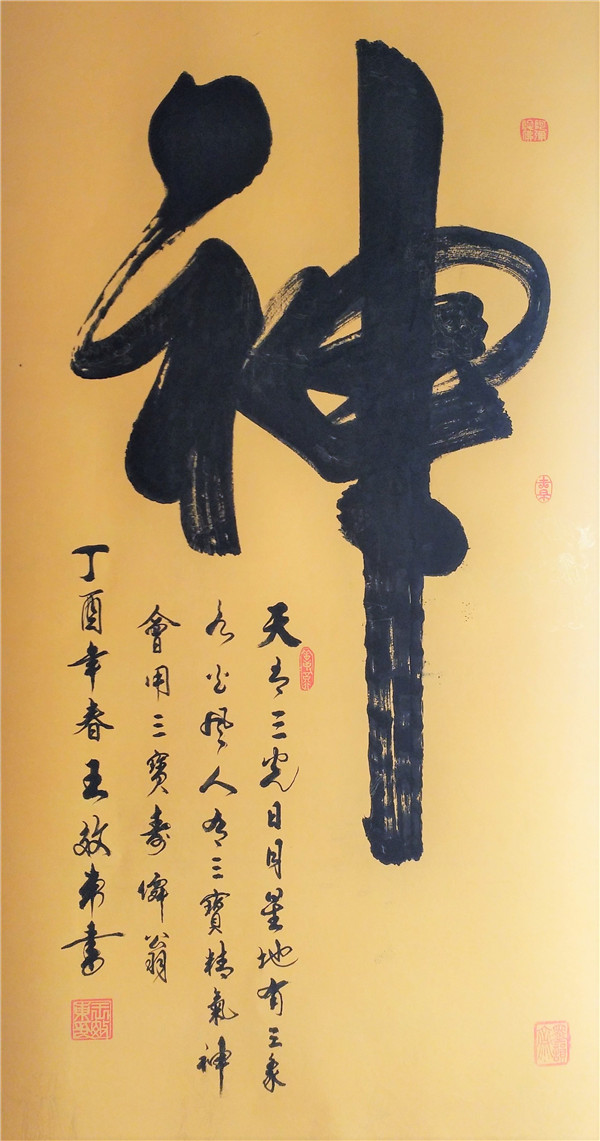 神
天有三光日月星地有三象
水火風人有三寶精氣神
會用三寶壽僊翁
丁酉年春王效東書